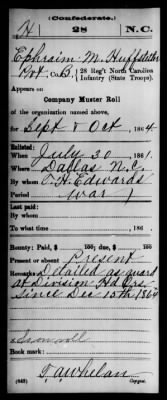 (Confederate.)
H 28 N.C.
Ephraim M. Huffstetler
Pvt, Co. B, 28 Reg't North Carolina
Infantry (State Troops).
Appears on
Company Muster Roll
of the organization named above,
for Sept & Oct, 1864.
Enlisted:
When July 30, 1861.
Where Dallas N.C.
By whom O. H. Edwards
Period War
Last paid:
By whom
To what time , 186 .
Bounty: Paid $ 100; due $ 100
Present or absent Present
Remarks: Detailed as guard
at Division Hd Qrs
Since Dec 15th 1864
Book mark:
T. A. Whelan
(642) Copyist.